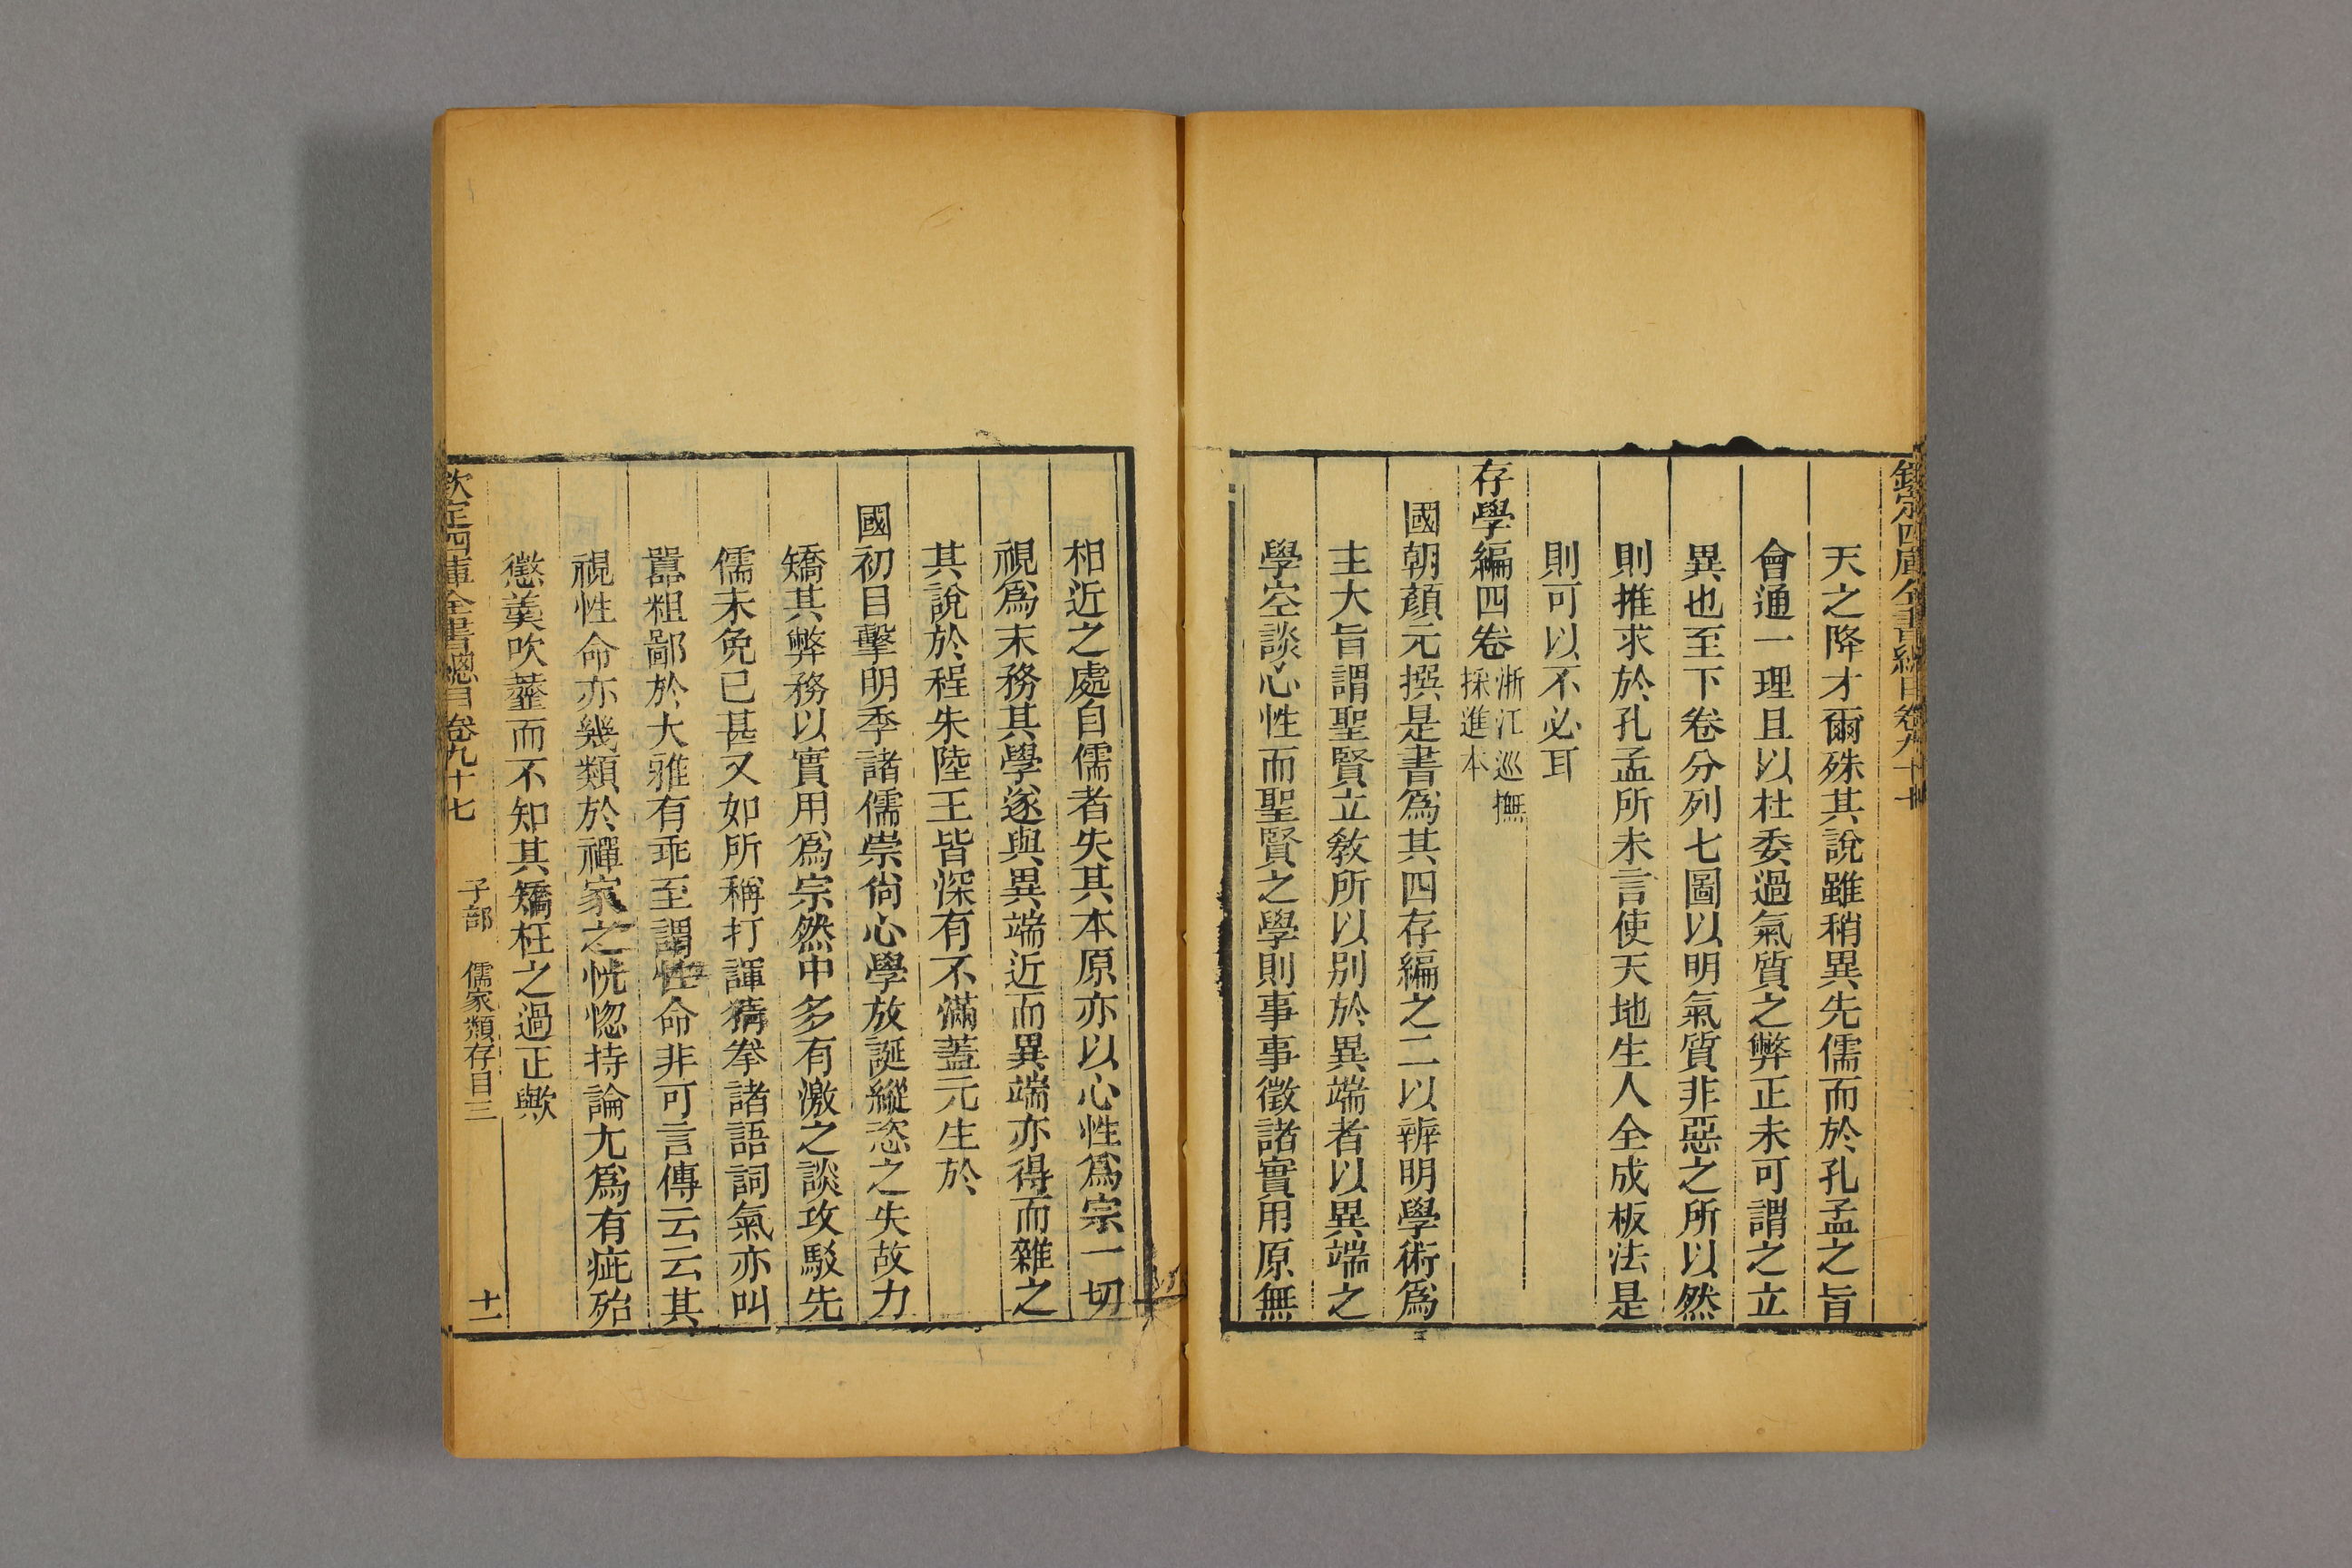 天之降才爾殊其說雖稍異先儒而於孔孟之旨
會通一理且以杜委過氣質之弊正未可謂之立
異也至下卷分列七圖以明氣質非惡之所以然
則推求於孔孟所未言使天地生人全成板法是
則可以不必耳
存學編四卷
浙江巡撫
採進本
國朝顏元撰是書爲其四存編之二以辨明學術爲
主大旨謂聖賢立教所以別於異端者以異端之
學空談心性而聖賢之學則事事徵諸實用原無
相近之處自儒者失其本原亦以心性爲宗一切
視爲末務其學遂與異端近而異端亦得而雜之
其說於程朱陸王皆深有不滿蓋元生於
國初目擊明季諸儒崇尙心學放誕縱恣之失故力
矯其弊務以實用爲宗然中多有激之談攻駁先
儒未免已甚又如所稱打諢猜拳諸語詞氣亦叫
囂粗鄙於大雅有乖至謂性命非可言傳云云其
視性命亦幾類於禪家之恍惚持論尤爲有疵殆
懲羹吹虀而不知其矯枉之過正歟
欽定四庫全書總目卷九十七　子部　儒家類存目三　十一